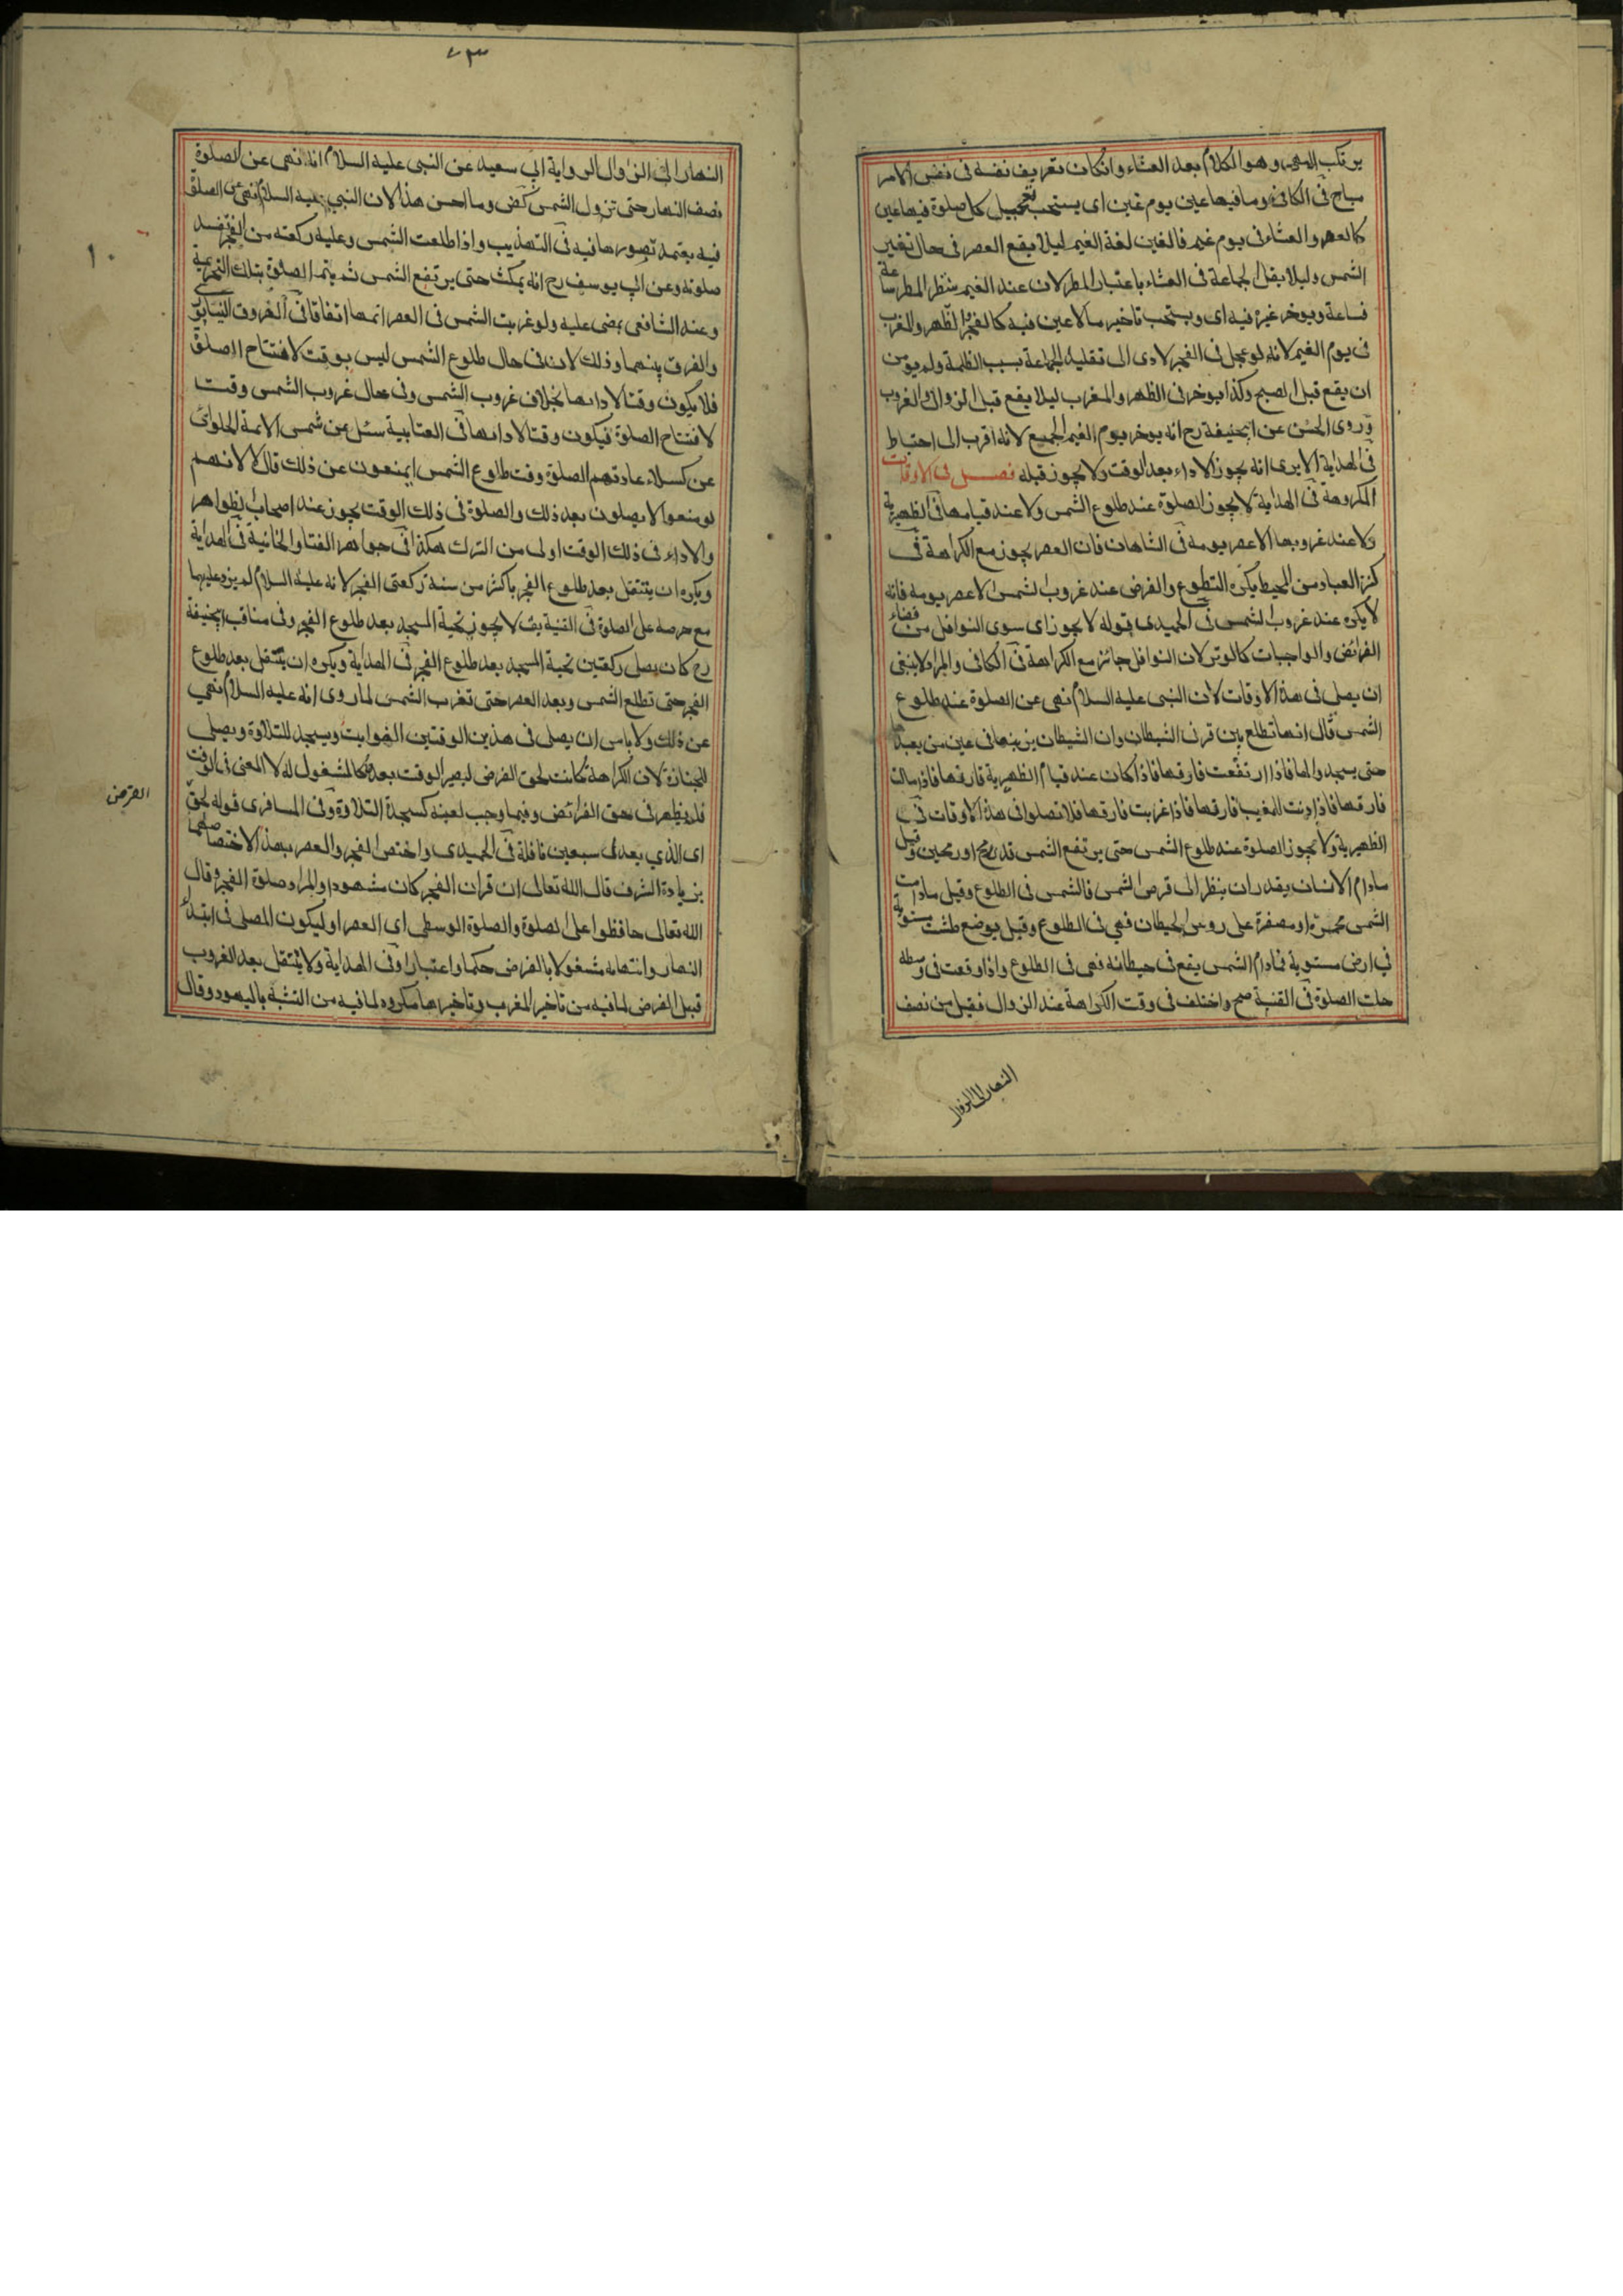 يرتكب السمر وهو الكلام بعد العشاء وانكان تعريف نفسه في نفس الامر
مباح في الكافي وما فيها عين يوم غين اى يستحب تعجيل كل صلوة فيها عين
كالعصر والعشاء في يوم غيم فالغين لغة الغيم ليلا يقع العصر في حال تغير
الشمس وليلا يقل الجماعة في العشاء باعتبار المطر لان عند الغيم ينتظر المطر ساعة
فساعة ويوخر غيره فيه اى ويستحب تاخير ما لا عين فيه كالفجر والظهر والمغرب
في يوم الغيم لانه لو عجل في الفجر لادى الى تقليل الجماعة بسبب الظلمة ولم يومن
ان يقع قبل الصبح وكذا يوخر في الظهر والمغرب ليلا يقع قبل الزوال والغروب
وروى الحسن عن ابيحنيفة رح انه يوخر يوم الغيم الجميع لانه اقرب الى احتياط
في الهداية الا يرى انه يجوز الاداء بعد الوقت ولا يجوز قبله فصل في الاوقات
المكروهة في الهداية لا يجوز الصلوة عند طلوع الشمس ولا عند قيامها في الظهيرة
ولا عند غروبها الا عصر يومه في الشاهان فان العصر يجوز مع الكراهة في
كنز العباد من المحيط يكره التطوع والفرض عند غروب الشمس الا عصر يومه فانه
لا يكره عند غروب الشمس في الحميدى قوله لا يجوز اى سوى النوافل من قضاء
الفرائض والواجبات كالوتر لان النوافل جائز مع الكراهة في الكافي والمراد لا ينبغي
ان يصلى في هذه الاوقات لان النبي عليه السلام نهى عن الصلوة عند طلوع
الشمس قال انها تطلع بين قرنى الشيطان وان الشيطان يزينها في عين من يعبدها
حتى يسجد والها فاذا ارتفعت فارقها فاذا كان عند قيام الظهيرة قارنها فاذا مالت
فارقها فاذا دنت للمغيب قارنها فاذا غربت فارقها فلا تصلوا في هذه الاوقات في
الظهيرية ولا تجوز الصلوة عند طلوع الشمس حتى يرتفع الشمس قدر رمح او رمحين وقيل
مادام الانسان يقدر ان ينظر الى قرص الشمس فالشمس في الطلوع وقيل مادامت
الشمس محمرة او مصفرة على روس الحيطان فهي في الطلوع وقيل يوضع طشت مستوية
في ارض مستوية فمادام الشمس يقع في حيطانه فهي في الطلوع واذا وقعت في وسطه
حلت الصلوة في القنية صح واختلف في وقت الكراهة عند الزوال فقيل من نصف
النهار الى الزوال
٧٣
النهار الى الزوال لرواية ابي سعيد عن النبي عليه السلام انه نهى عن الصلوة
نصف النهار حتى تزول الشمس وما احسن هذا لان النبي عليه السلام نهى عن الصلوة
فيه يعتمد تصورها فيه في التهذيب واذا طلعت الشمس وعليه ركعة من الفجر فسد
صلوته وعن ابي يوسف رح انه يمكث حتى يرتفع الشمس ثم يتم الصلوة بتلك التحريمة
وعند الشافعي يمضى عليه ولو غربت الشمس في العصر اتمها اتفاقا في
والفرق بينهما وذلك لان في حال طلوع الشمس ليس بوقت لافتتاح الصلوة
فلا يكون وقتا لادائها بخلاف غروب الشمس وفي حال غروب الشمس وقت
لافتتاح الصلوة فيكون وقتا لادائها في العتابية سئل عن شمس الائمة الحلوائى
عن كسلاء عادتهم الصلوة وقت طلوع الشمس ايمنعون عن ذلك قال لا لانهم
لو منعوا لا يصلون بعد ذلك والصلوة في ذلك الوقت يجوز عند اصحاب الظواهر
والاداء في ذلك الوقت اولى من الترك هكذا في جواهر الفتاوا الخانية في الهداية
ويكره ان يتنفل بعد طلوع الفجر باكثر من سنة ركعتى الفجر لانه عليه السلام لم يزد عليهما
مع حرصه على الصلوة في القنية بق لا يجوز تحية المسجد بعد طلوع الفجر وفي مناقب ابيحنيفة
رح كان يصلى ركعتين تحية المسجد بعد طلوع الفجر في الهداية ويكره ان يتنفل بعد طلوع
الفجر حتى تطلع الشمس وبعد العصر حتى تغرب الشمس لما روى انه عليه السلام نهى
عن ذلك ولا باس ان يصلى في هذين الوقتين الفوايت ويسجد للتلاوة ويصلى
للجنازة لان الكراهة كانت لحق الفرض ليصير الوقت بعده كالمشغول له لا المعنى في الوقت
فلم يظهر في حق الفرائض وفيما وجب لعينه كسجدة التلاوة وفي المسافرى قوله لحق
الفرض
اى الذي يعدل سبعين نافلة في الحميدى واختص الفجر والعصر بهذا الاختصاصهما
بزيادة الشرف قال الله تعالى ان قران الفجر كان مشهودا والمراد صلوة الفجر وقال
الله تعالى حافظوا على الصلوة والصلوة الوسطى اى العصر او ليكون المصلى في ابتداء
النهار وانتهائه مشغولا بالفرض حكما واعتبارا وفي الهداية ولا يتنفل بعد الغروب
قبل الفرض لما فيه من تاخير المغرب وتاخيرها مكروه لما فيه من التشبه باليهود وقال